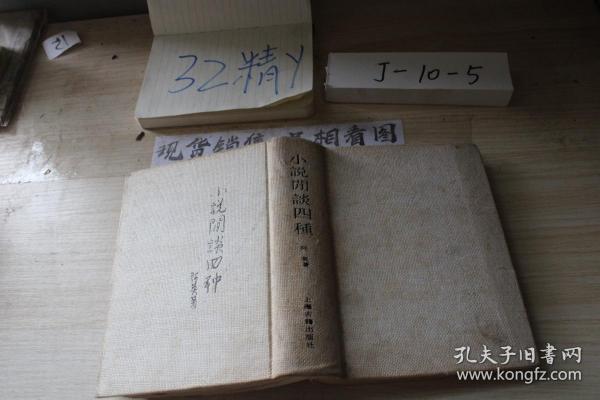 21
32精Y
J-10-5
现货销售 品相看图
小說閒談四種
阿英著
上海古籍出版社
小說閒談四种
阿英著
孔夫子旧书网
www.kongfz.com